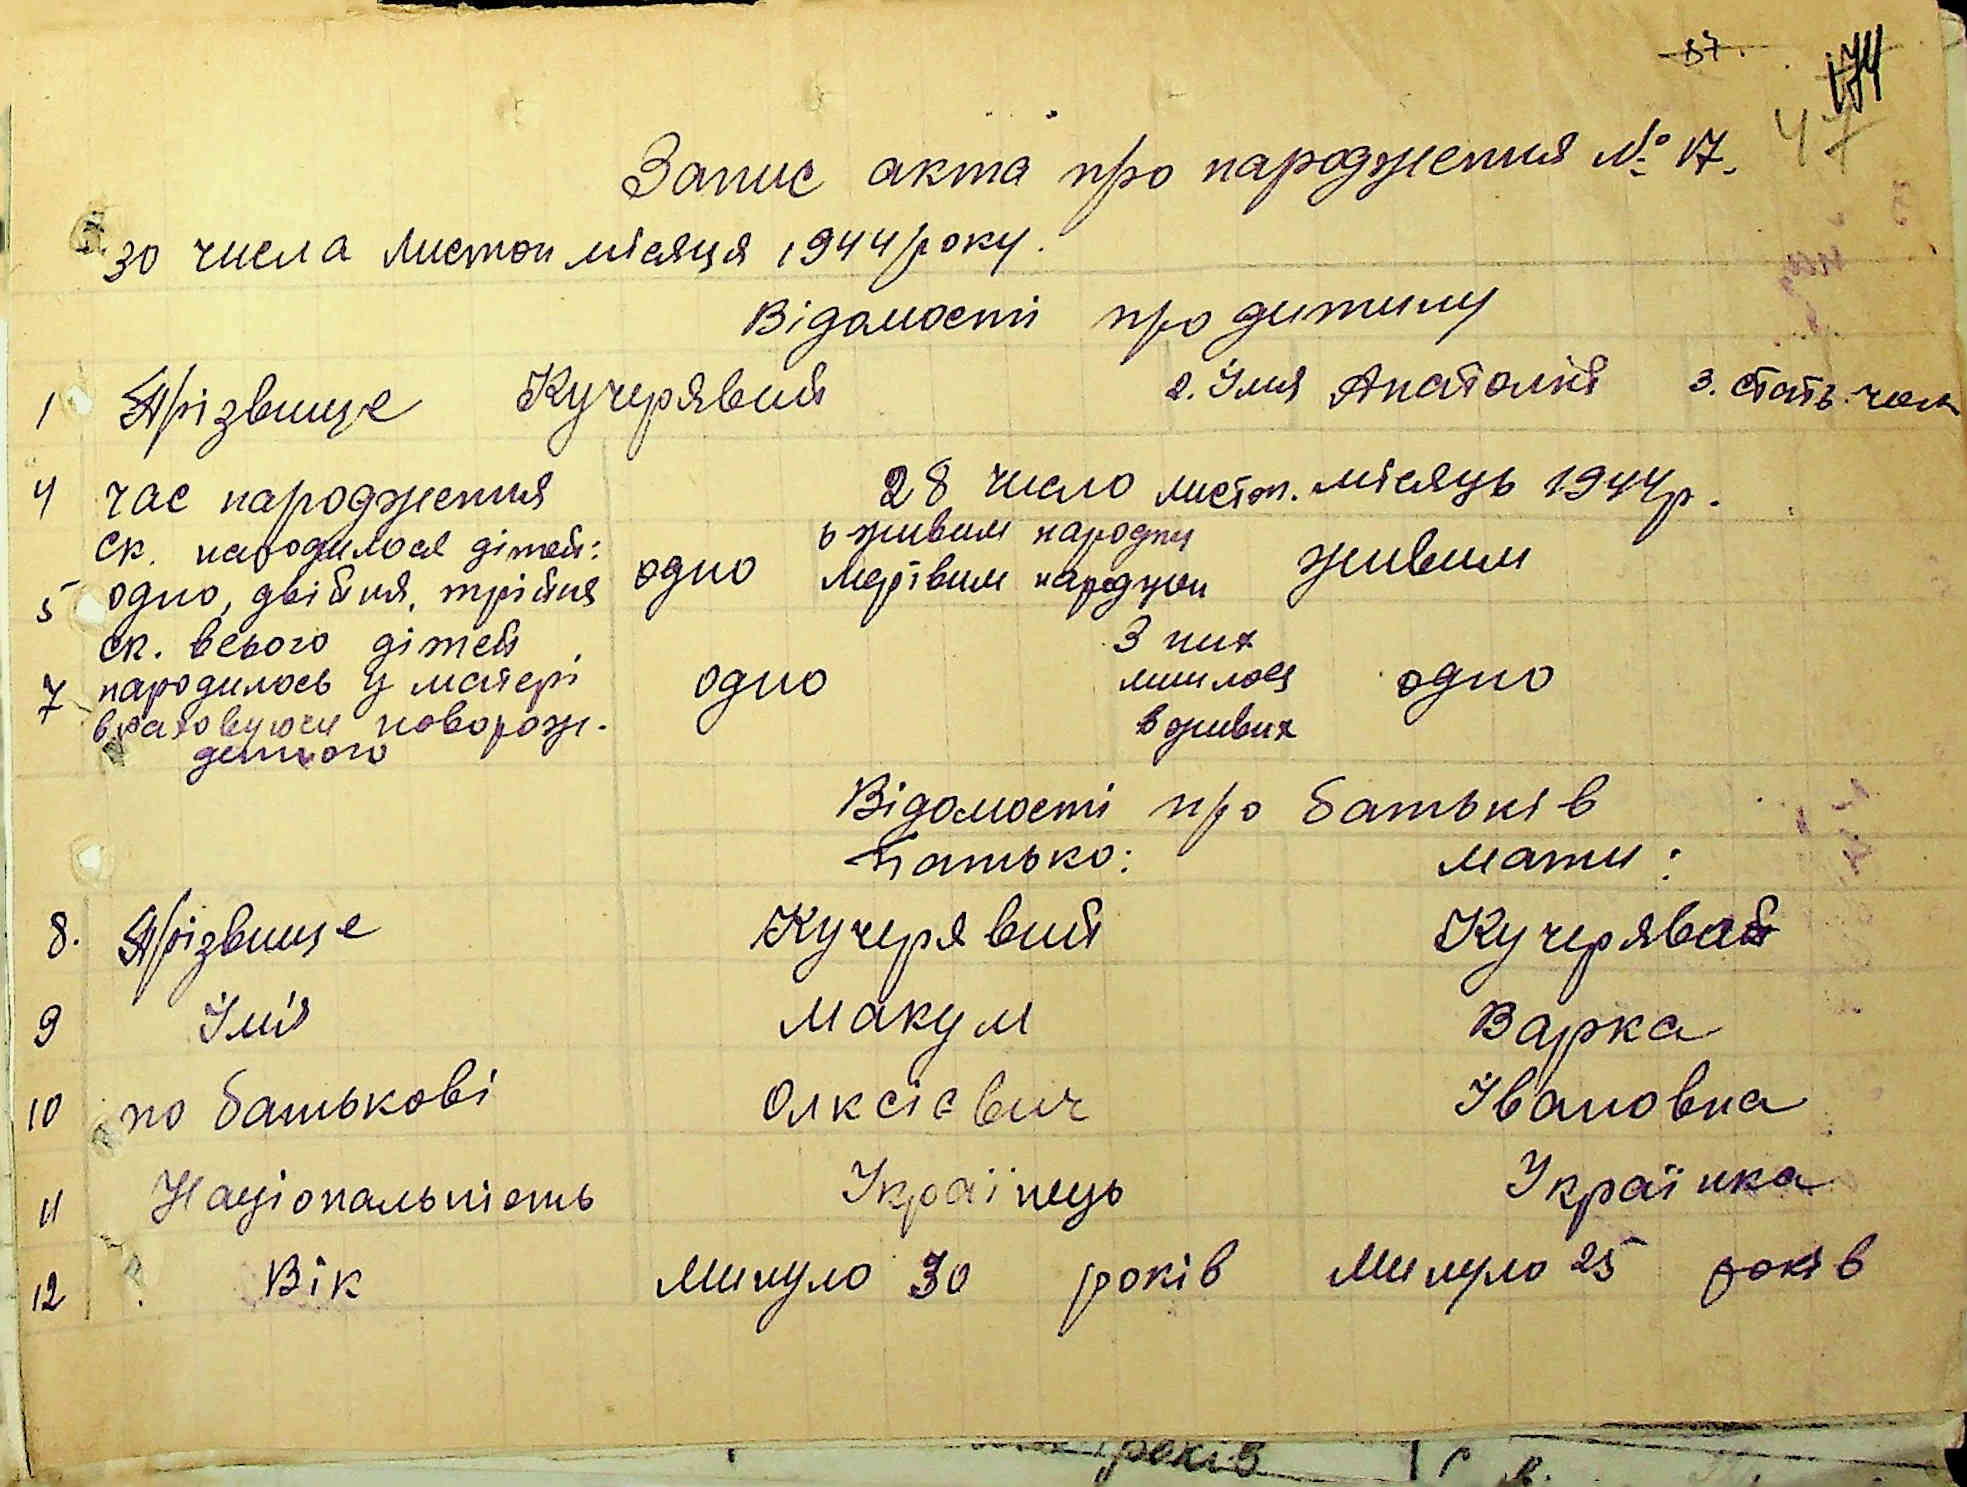 37.
174
47
Запис акта про народження № 17.
30 числа листоп місяця 1944 року.
Відомості про дитину
1 Прізвище Кучерявий 2. Імя Анатолій 3. стать чол
4 час народження 28 число листоп. місяць 1944 р.
ск. народилося дітей: 6 живим народж
5 одно, двійня, трійня одно Мертвим народжен живим
ск. всього дітей З них
7 народилось у матері одно лишилося одно
враховуючи новорож- в живих
денного
Відомості про батьків
Батько: мати:
8. Прізвище Кучерявий Кучерявая
9 Ім'я Макум Варка
10 по батькові Олксієвич Івановна
11 Національність Українець Українка
12 Вік Минуло 30 років Минуло 25 років
років